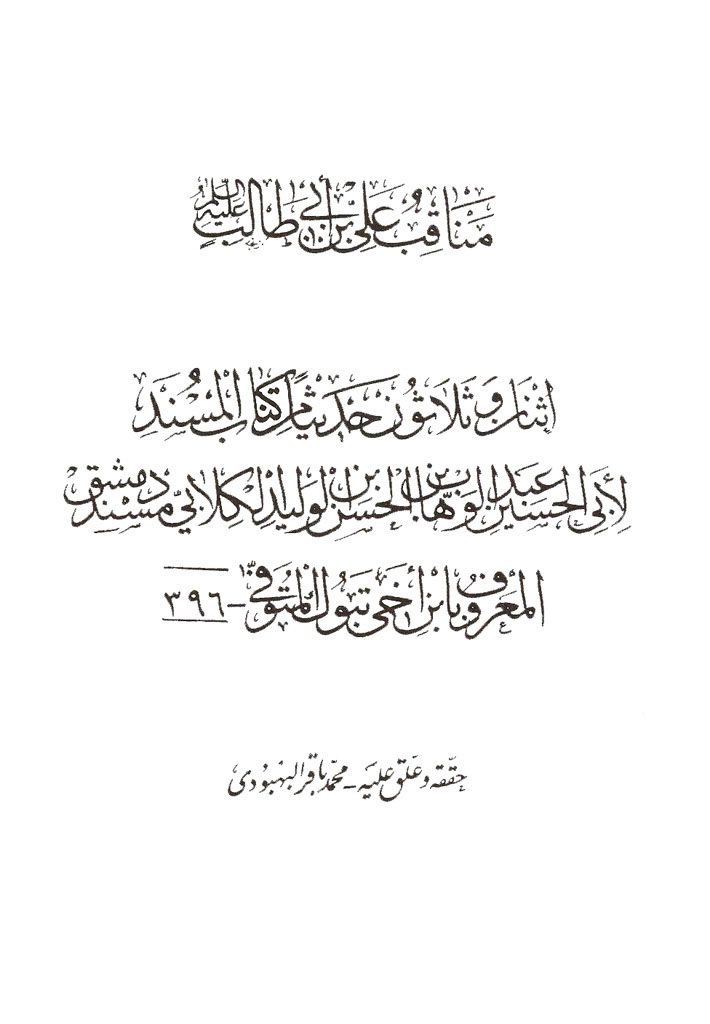 مَنَاقِبُ عَلِيِّ بْنِ أَبِي طَالِبٍ عليه السلام
إثنان وثلاثون حديثاً من كتاب المسند
لأبي الحسين عبد الوهاب بن الحسن ابن الوليد الكلابي مسند دمشق
المعروف بابن أخي تبوك المتوفى - ٣٩٦
حققه وعلق عليه - محمد باقر البهبودى